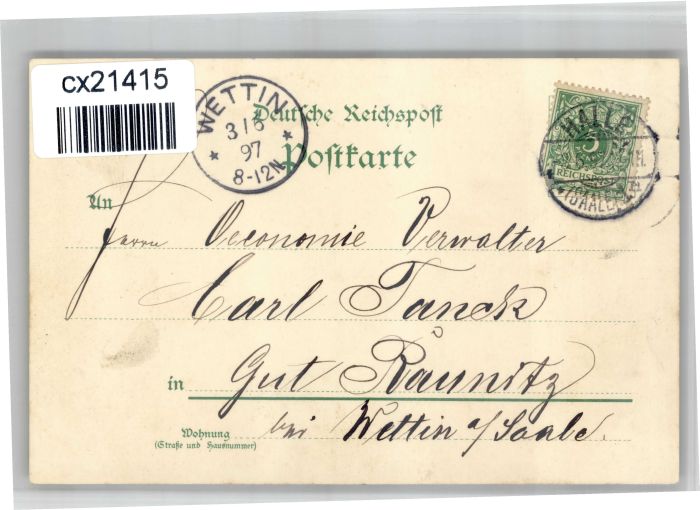 cx21415
WETTIN
3/6
97
8-12N.
Deutsche Reichspost
Postkarte
HALLE
5
REICHSPOST
(SAALE)
An
Herrn Oeconomie Verwalter
Carl Tanck
in Gut Raunitz
Wohnung bei Wettin a/Saale.
(Straße und Hausnummer)